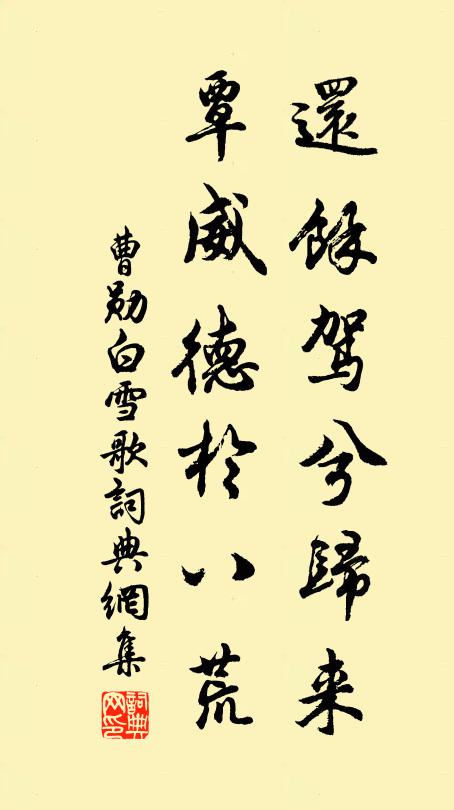 還餘駕兮歸来
覃威德於八荒
曹勛白雪歌詞典網集
詞典網印